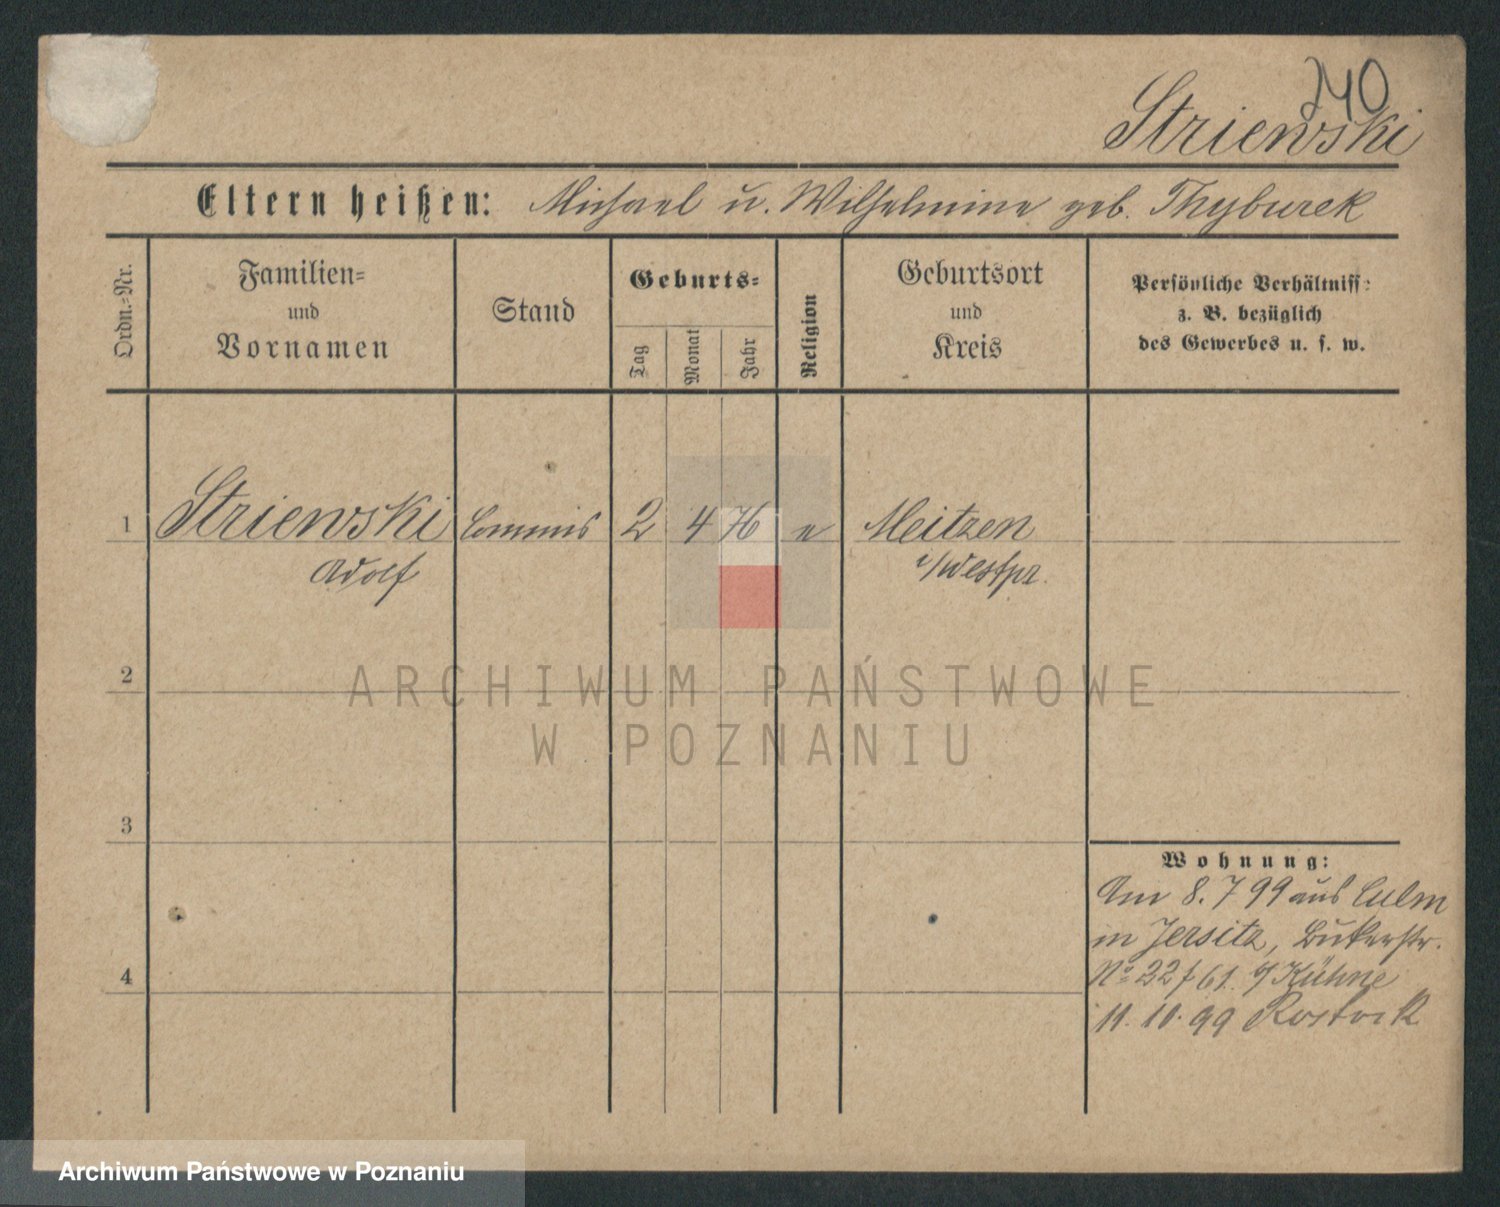 240
Striewski
Eltern heißen: Michael u. Wilhelmine geb. Thyburek
Ordn.-Nr.
Familien-
und
Vornamen
Stand
Geburts-
Tag
Monat
Jahr
Religion
Geburtsort
und
Kreis
Persönliche Verhältniss:
z. B. bezüglich
des Gewerbes u. s. w.
1 Striewski Commis 2 4 76 e Meitzen
Adolf i/Westpr.
2
3
4
Wohnung:
Am 8. 7 99 aus Culm
in Jersitz, Bukerstr.
No 22 f 61. b/ Kühne
11. 10. 99 Rostock
ARCHIWUM PAŃSTWOWE
W POZNANIU
Archiwum Państwowe w Poznaniu